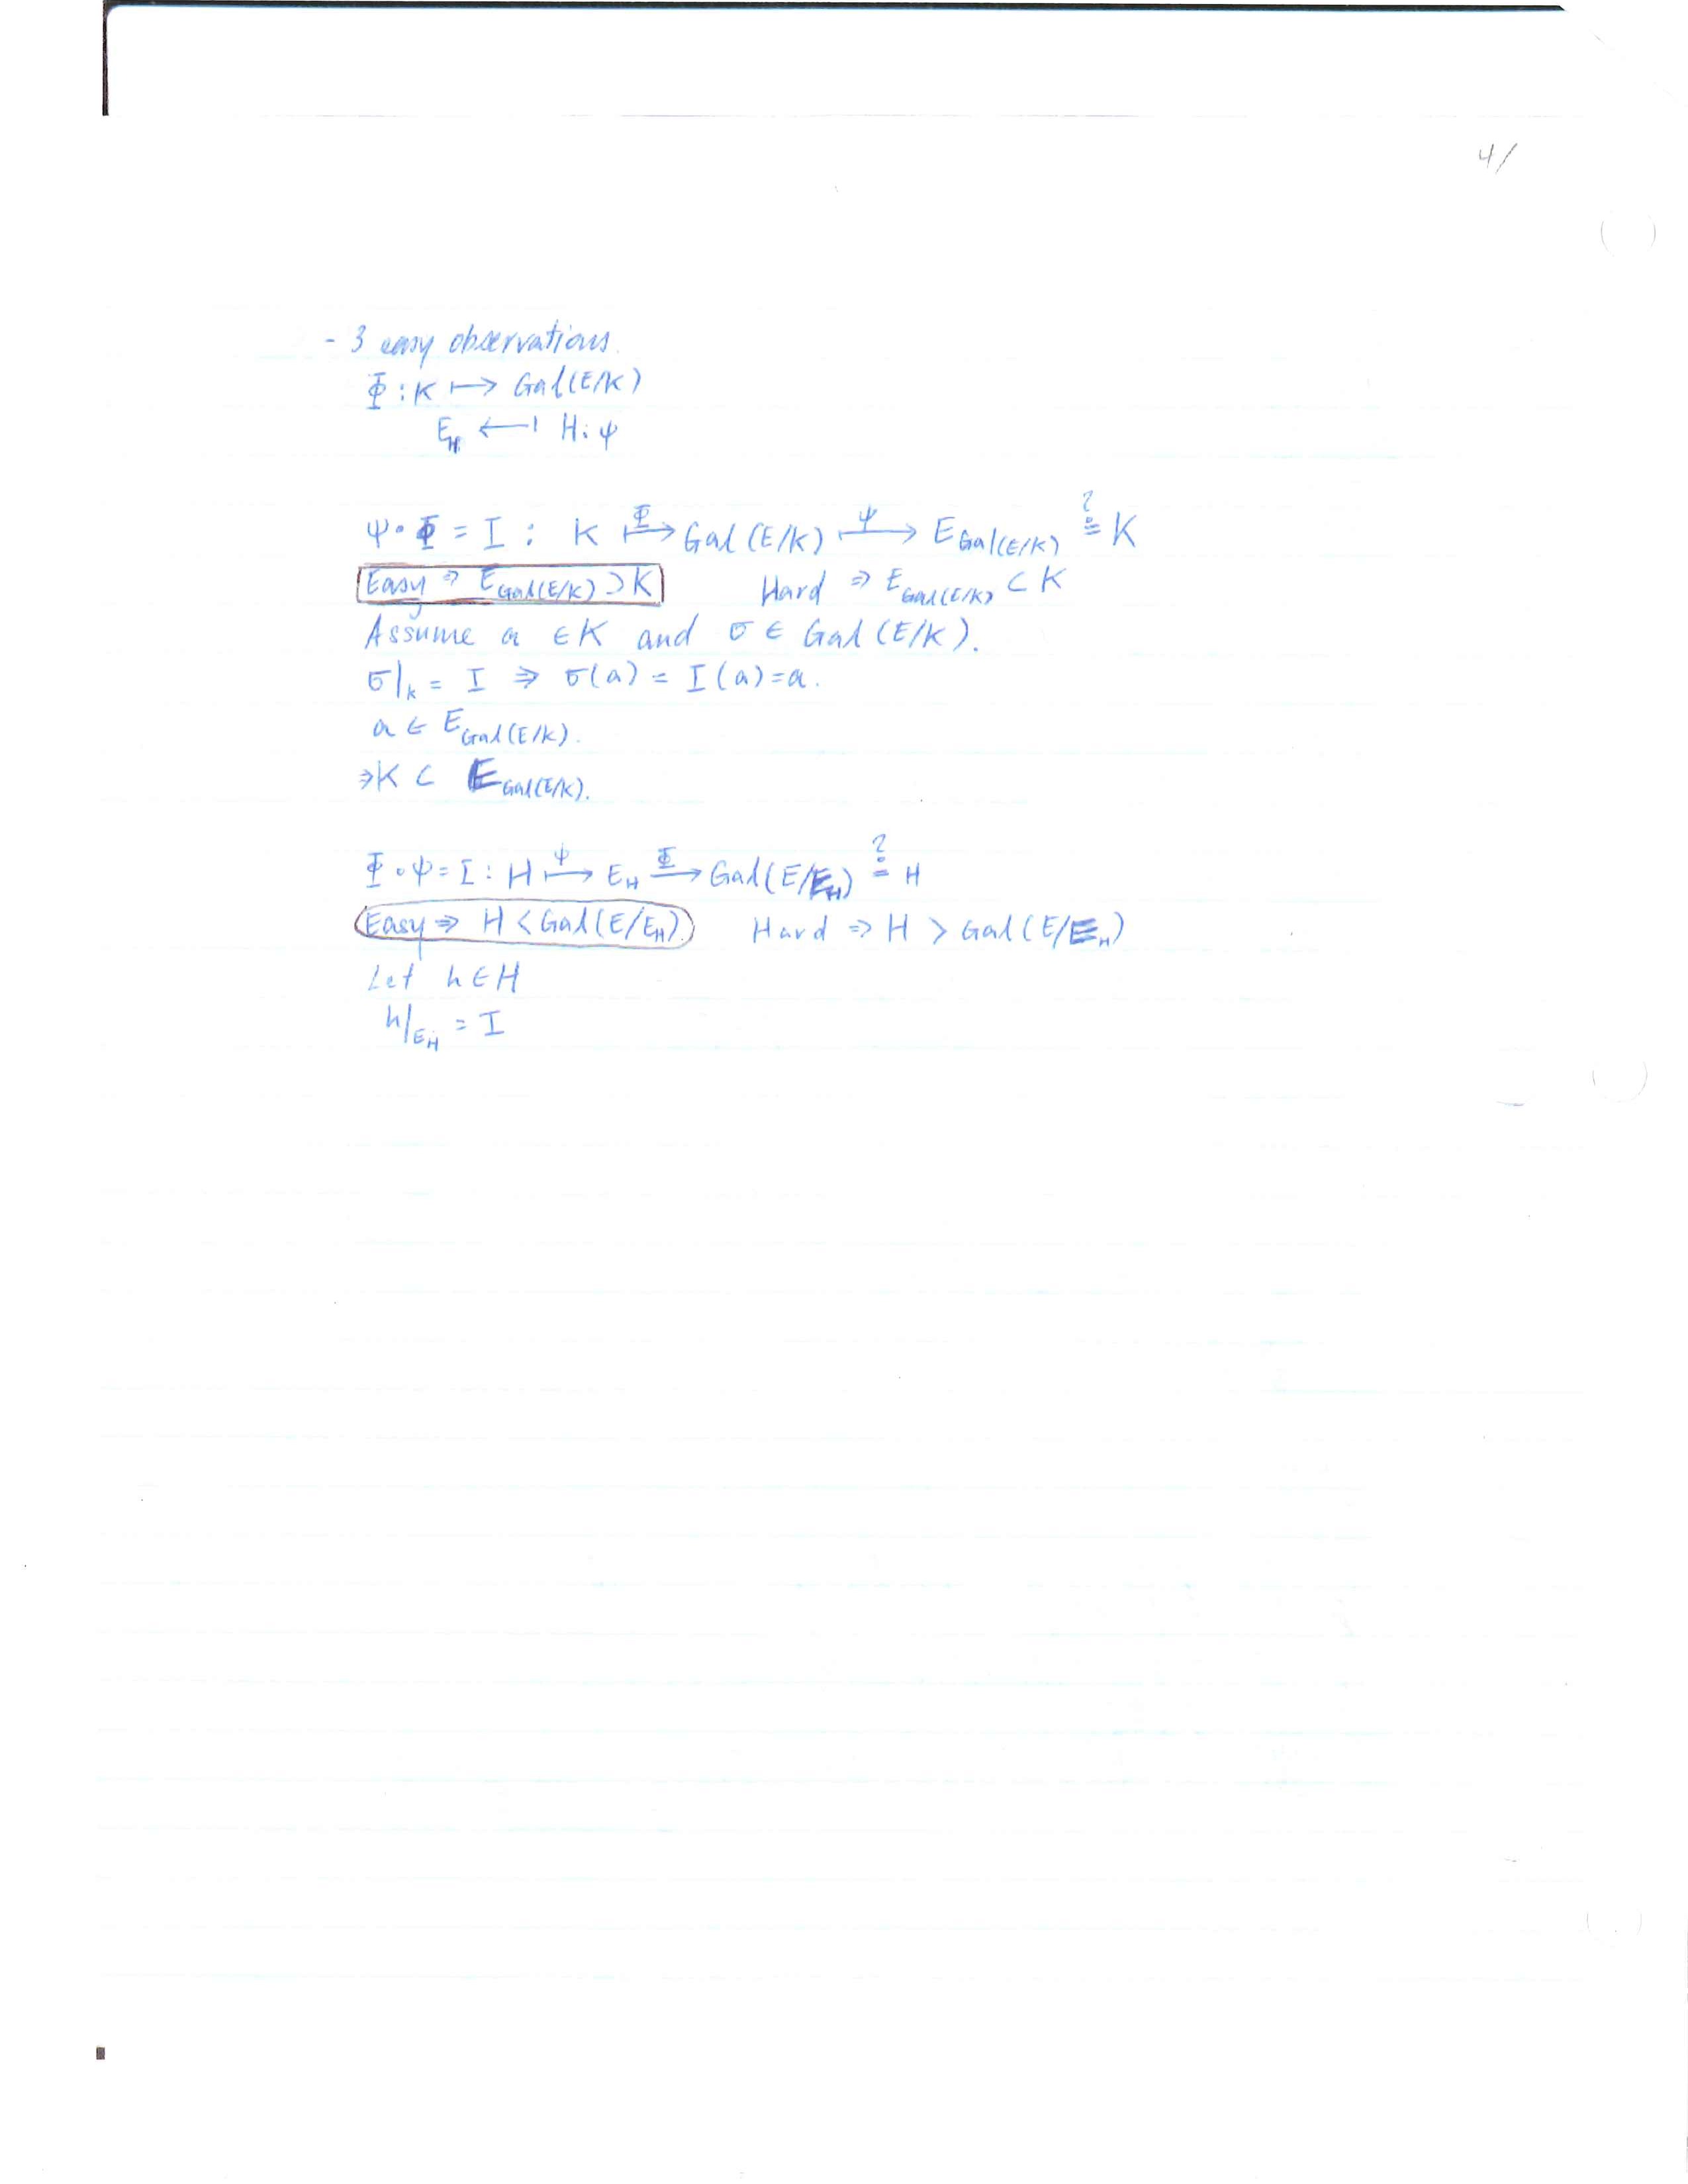 4/
- 3 easy observations.
Φ : K ⟼ Gal(E/K)
E_H ⟻ H : ψ
ψ∘Φ = I : K ⟼^Φ Gal(E/K) ⟼^ψ E_Gal(E/K) ≟ K
Easy ⇒ E_Gal(E/K) ⊃ K Hard ⇒ E_Gal(E/K) ⊂ K
Assume a ∈ K and σ ∈ Gal(E/K).
σ|_K = I ⇒ σ(a) = I(a) = a.
a ∈ E_Gal(E/K).
⇒ K ⊂ E_Gal(E/K).
Φ∘ψ = I : H ⟼^ψ E_H ⟼^Φ Gal(E/E_H) ≟ H
Easy ⇒ H < Gal(E/E_H). Hard ⇒ H > Gal(E/E_H)
Let h ∈ H
h|_E_H = I